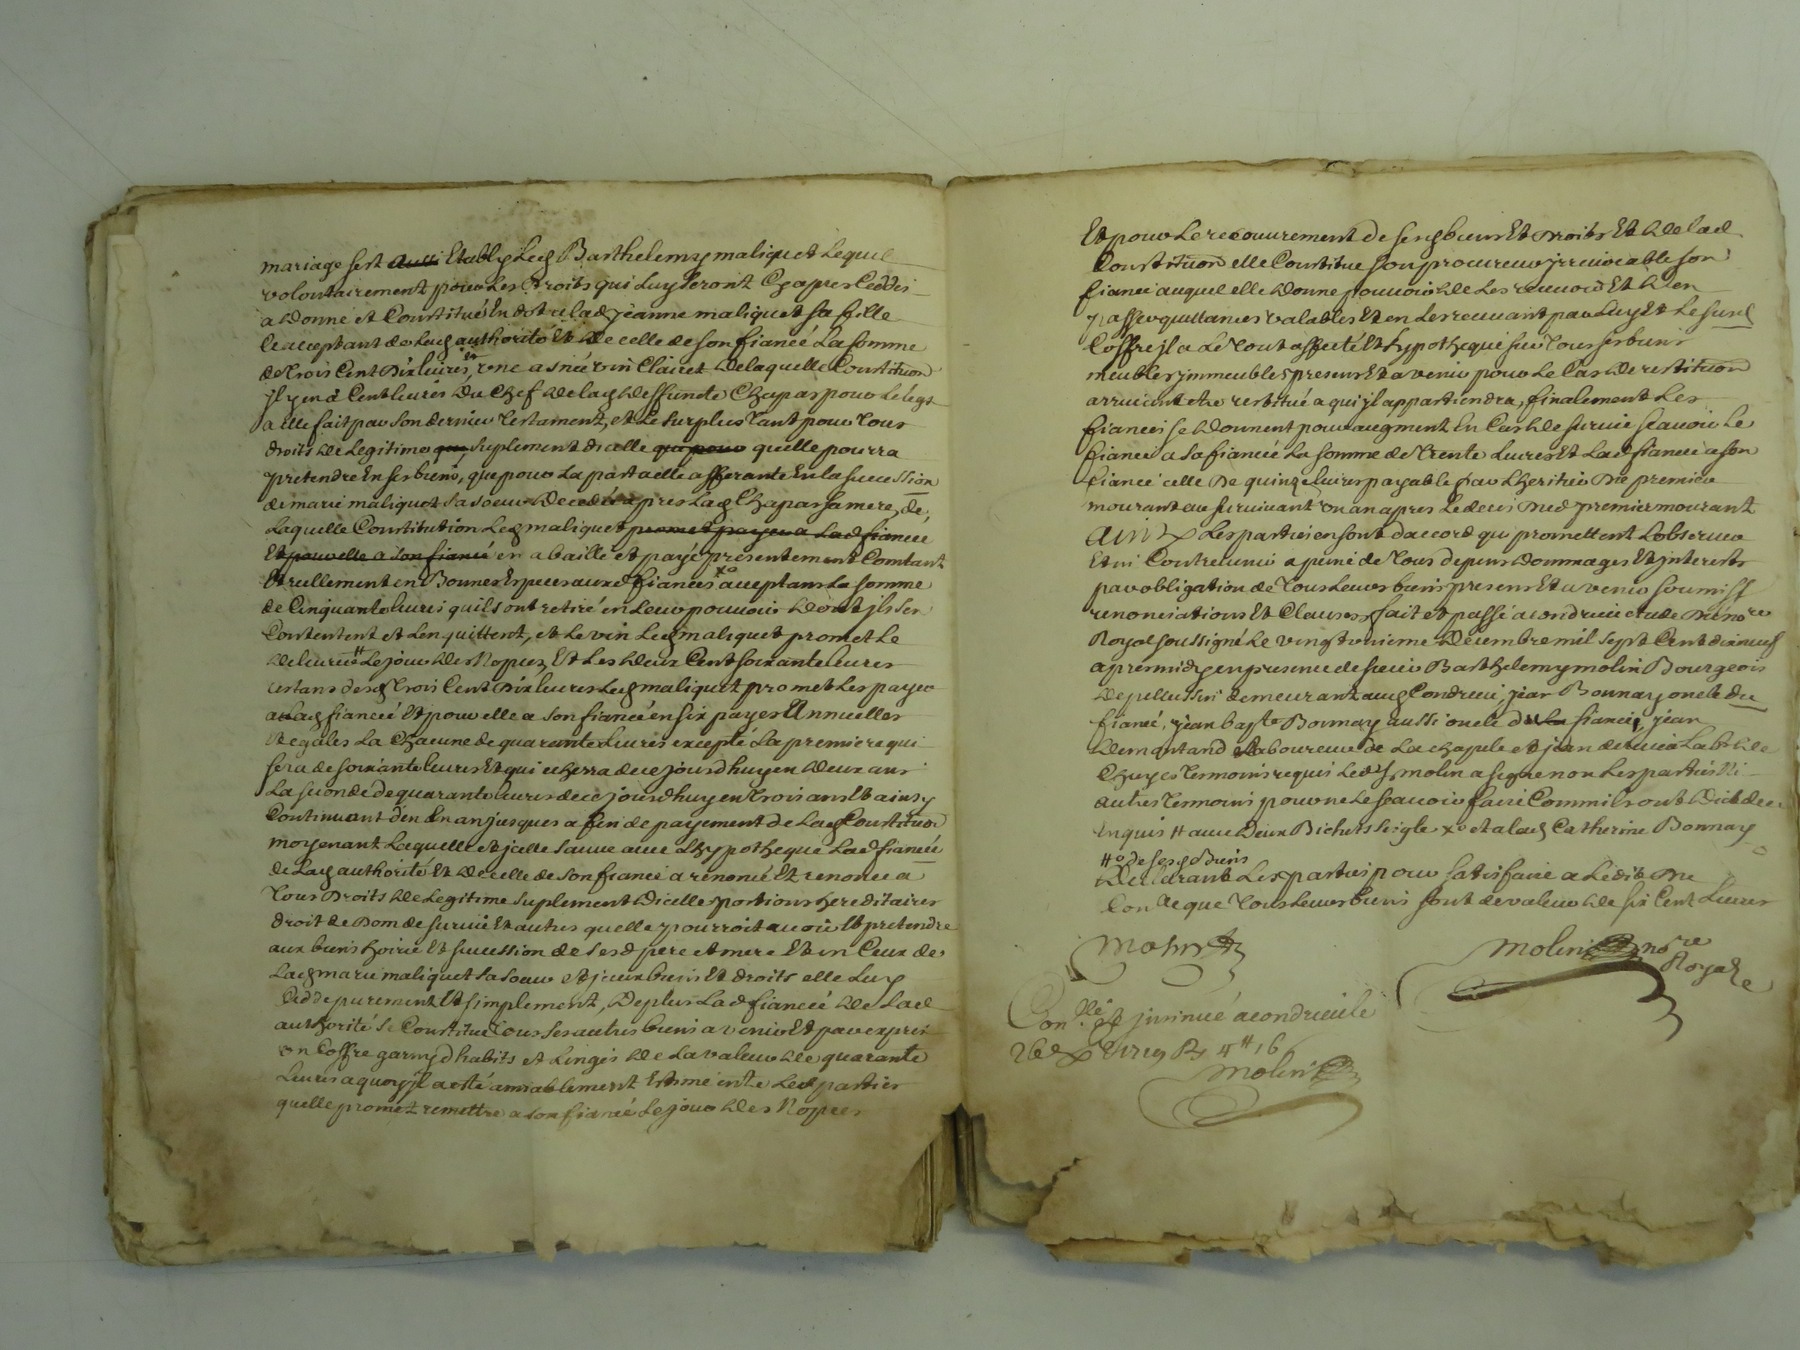 mariage sest aussi Etably Led Barthelemy maliquet Lequel
volontairement pour Les Droits qui Luy seront Cy apres Ceddés
a donné et Constitué En dot a lad jeanne maliquet sa fille
Ce acceptant de Lad authorité Et de celle de son fiancé La somme
de Trois Cent Dix livres, et une asnée vin Clairet de laquelle Constitution
jl y en a Cent livres du Chef de lad deffunte Chapas pour Le legt
a elle fait par son dernier Testament, et Le surplus Tant pour Tous
droits de Legitime que suplement dicelle qui pour quelle pourra
pretendre En ses biens, que pour La part a elle afferante En la succession
de marie maliquet sa soeur Decedée apres Lad Chapas sa mere, de
Laquelle Constitution Led maliquet promet payer a Lad fiancée
Et pour elle a son fiancé en a baillé et payé presentement Comtant
Et reellement en Bonnes Especes auxd fiancés xo acceptans La somme
de Cinquante livres quils ont retiré en Leur pouvoir dont jls se
Contentent et Len quittent, et Le vin Led maliquet promet Le
delivrer # Le jour des Nopces, Et Les deux Cent soixante livres
restans desd Trois Cent Dix livres Led maliquet promet Les payer
a Lad fiancée Et pour elle a son fiancé en six payes Annuelles
Et egales La Chacune de quarante livres excepté La premiere qui
sera de soixante livres Et qui echerra de ce jourdhuy en deux ans
La seconde de quarante livres de ce jourdhuy en Trois ans Et ainsy
Continuant d'en En an jusques a fin de payement de Lad Constitution
moyenant Laquelle et jcelle sauve avec Lhypotheque Lad fiancée
de Lad authorité Et de celle de son fiancé a renoncé Et renonce a
Tous Droits de Legitime suplement Dicelle portions hereditaires
droit de Dom de survie Et autres quelle y pourroit avoir Et pretendre
aux biens hoirie Et succession de sesd pere et mere Et en Ceux de
Lad marie maliquet sa soeur et jceux biens Et droits elle Luy
Cedde purement Et simplement, De plus Lad fiancée de Lad
authorité se Constitue Tous ses autres biens a venir Et par exprés
un Coffre garny dhabits et Linges de La valeur de quarante
Livres a quoy jl a esté amiablement Estimé entre Led parties
quelle promet remettre a son fiancé Le jour des Nopces
Et pour Le recouvrement de sesd biens Et Droits Et de lad
Constitution elle Constitue son procureur jrrevocable son
fiancé auquel elle donne pouvoir de Les recevoir Et den
passer quittances valables Et en Les recevant par Luy Et Le susd
Coffre jl a Le Tout affecté Et hypothequé sur Tous ses biens
meubles jmmeubles presens Et a venir pour Le Cas de restitution
arrivant etre restitué a qui jl appartiendra, finalement Les
fiancés se donnent pour augment En Cas de survie sçavoir Le
fiancé a sa fiancée La somme de Trente Livres Et Lad fiancée a son
fiancé celle De quinze livres payable par Lheritier Du premier
mourant au survivant un an apres Le deces Dud premier mourant
Ainsy Les parties en sont daccord qui promettent Lobserver
Et ni Contrevenir a peine de Tous depens Dommages Et jnterests
par obligation de Tous Leurs biens presens Et a venir soumiss
renonciations Et Clauses, fait et passé a condrieu etude De no.re
Royal soussigné Le vingt troisieme decembre mil sept Cent dix neuf
apres midy en presence de sieur Barthelemy molin Bourgeois
De pelussin demeurant aud Condrieu, jean Bonnay oncle du
fiancé, jean bap.te Bonnay aussi oncle du la fiancé, jean
demontand Laboureur de La chapele et jean
Chuyes Temoins requis Led S.r molin a signé non Les parties Ni
autres Temoins pour ne Le sçavoir faire Comme ils ont Dict de ce
Enquis # avec Deux Bichets seigle xo et a lad Catherine Bonnay
#o de sesd Biens
Declarant Les parties pour satisfaire a Ledit Du
Con.le que Tous Leurs biens sont de valeur de six Cent Livres
molin
molin no.re
Royal
Con.llé et jnsinué a condrieu le
26e Xbre 1719 R 4# 16
molin